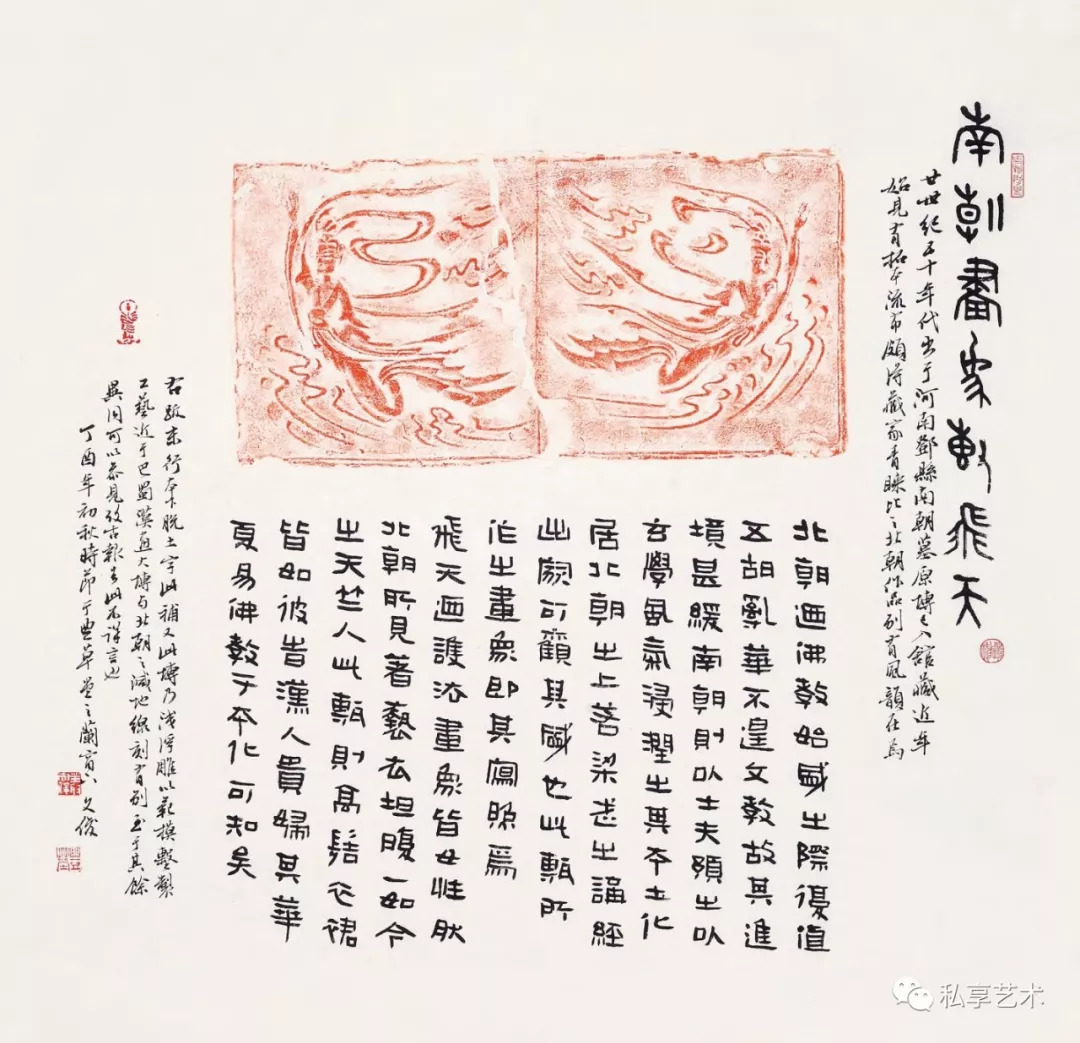 南朝畫象甎飛天
廿世纪五十年代出于河南鄧縣南朝墓原塼已入館藏近年
始見有拓本流布頗得藏家青睐比之北朝作品别有風韻在焉
北朝迺佛教始盛之際復值
五胡亂華不遑文教故其進
境甚緩南朝則以士夫領之以
玄學氣浸潤之其本土化
居北朝之上若梁武之誦經
此可觀其盛也此甎所
作之畫象即其寫照焉
飛天迺護法畫象皆女性肰
北朝所見著衣坦腹一如今
之天竺人此甎則高髻衣裙
皆如彼旹漢人貴婦其華
夏易佛教于本化可知矣
右跋末行本下脱土字此補又此塼乃浅浮雕以範模墼製
工藝近于巴蜀漢画大塼与北朝之減地線刻有别至于其餘
異同可以参見考古報告此不詳言也
丁酉年初秋時節于豊草堂之蘭窗下 久俊
私享艺术